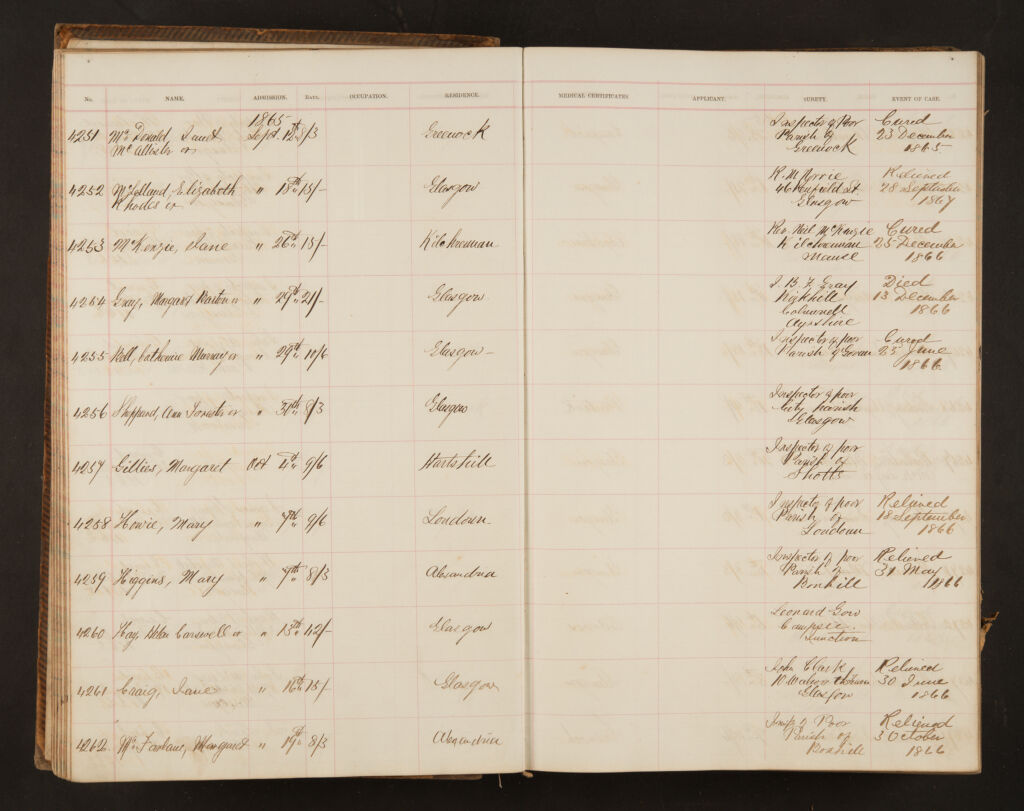 No. NAME. ADMISSION. RATE. OCCUPATION. RESIDENCE. MEDICAL CERTIFICATES. APPLICANT. SURETY. EVENT OF CASE.
1865
4251 McDonald, Janet Sept. 12th 8/3 Greenock Inspector of Poor Cured
McAllister or Parish of 23 December
Greenock 1865.
4252 McLelland, Elizabeth " 18th 15/- Glasgow Relieved
Rhodes or 46 Renfield St 28 September
Glasgow 1867
4253 McKenzie, Jane " 26th 15/- Kilchrennan Rev. Neil McKenzie Cured
Kilchrennan 25 December
Manse 1866
4254 Gray, Margaret Barton or " 29th 21/- Glasgow. J. B. Gray Died
13 December
Colmonell 1866
Ayrshire
4255 Bell, Catherine Murray or " 29th 10/6 Glasgow- Inspector of poor Cured
Parish of Govan 23 June
1866
4256 Sheppard, Ann Forester or " 8/3 Glasgow Inspector of poor
City parish
Glasgow
4257 Gillies, Margaret Oct 4th 9/6 Hartshill Inspector of poor
Parish of
Shotts
4258 Howie, Mary " 7th 9/6 Loudoun. Inspector of poor Relieved
Parish of 18 September
Loudoun 1866
4259 Higgins, Mary " 7th 8/3 Alexandria Inspector of poor Relieved
Parish of 31 May
Bonhill 1866
4260 Hay, Helen Carswell or " 13th 42/- Glasgow Leonard Gow
Campsie.
Junction
4261 Craig, Jane " 16th 15/- Glasgow John Clark, Relieved
10 30 June
Glasgow 1866
4262 McFarlane, Margaret " 19th 8/3 Alexandria Insp of Poor Relieved
Parish of 3 October
Bonhill 1866